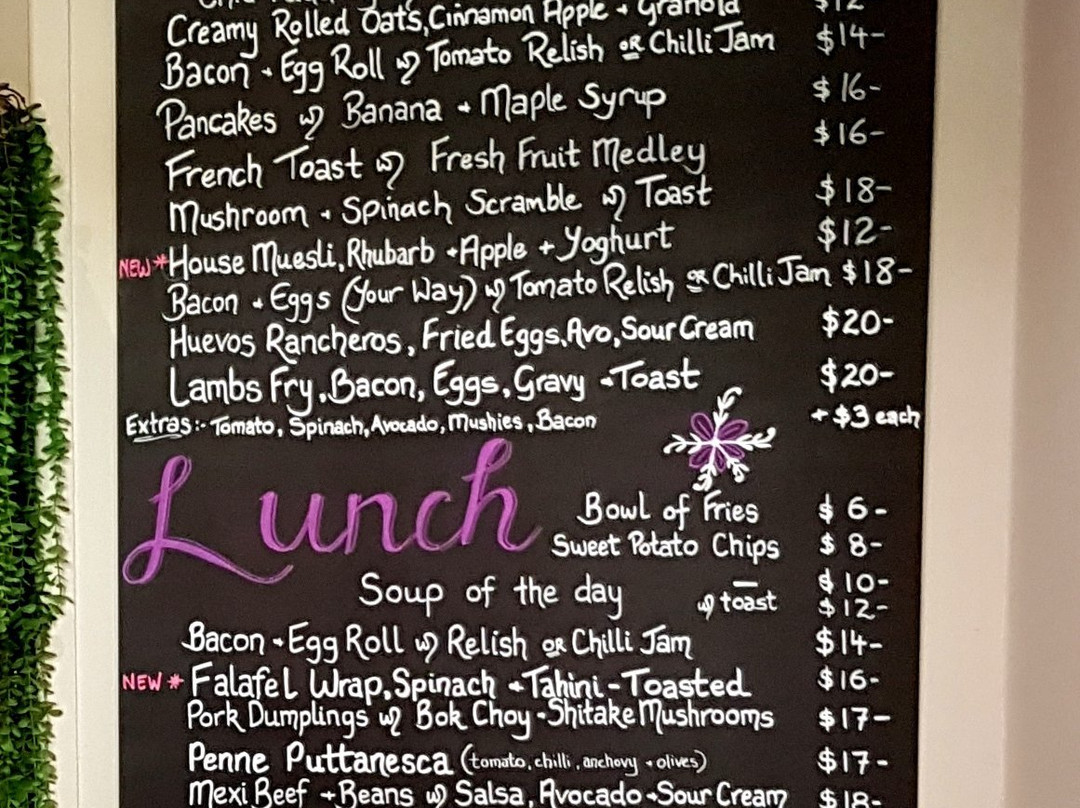 Creamy Rolled Oats, Cinnamon Apple + Granola $12
Bacon + Egg Roll w/ Tomato Relish or Chilli Jam $14-
Pancakes w/ Banana + Maple Syrup $16-
French Toast w/ Fresh Fruit Medley $16-
Mushroom + Spinach Scramble w/ Toast $18-
NEW * House Muesli, Rhubarb + Apple + Yoghurt $12-
Bacon + Eggs (Your Way) w/ Tomato Relish or Chilli Jam $18-
Huevos Rancheros, Fried Eggs, Avo, Sour Cream $20-
Lambs Fry, Bacon, Eggs, Gravy + Toast $20-
Extras:- Tomato, Spinach, Avocado, Mushies, Bacon + $3 each
Lunch
Bowl of Fries $ 6-
Sweet Potato Chips $ 8-
Soup of the day — $10-
w/ toast $12-
Bacon + Egg Roll w/ Relish or Chilli Jam $14-
NEW * Falafel Wrap, Spinach + Tahini - Toasted $16-
Pork Dumplings w/ Bok Choy + Shitake Mushrooms $17-
Penne Puttanesca (tomato, chilli, anchovy + olives) $17-
Mexi Beef + Beans w/ Salsa, Avocado + Sour Cream $18-